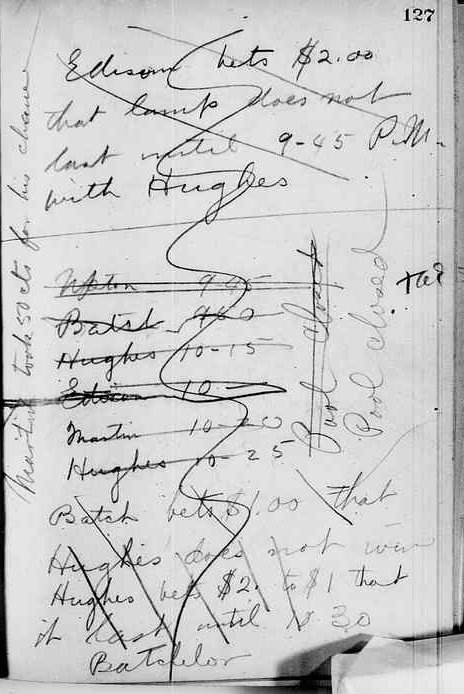 127
Edison bets $2.00
that lamp does not
last until 9-45 P.M.
with Hughes
Upton 9-45
Batch
Hughes 10-15
Edison 10
Martin 10-20
Hughes 10-25
Pool closed
Pool closed
Martin took 50 cts for his chance
Batch bets $1.00 that
Hughes does not win
Hughes bets $2. to $1 that
it last until 10 30
Batchelor